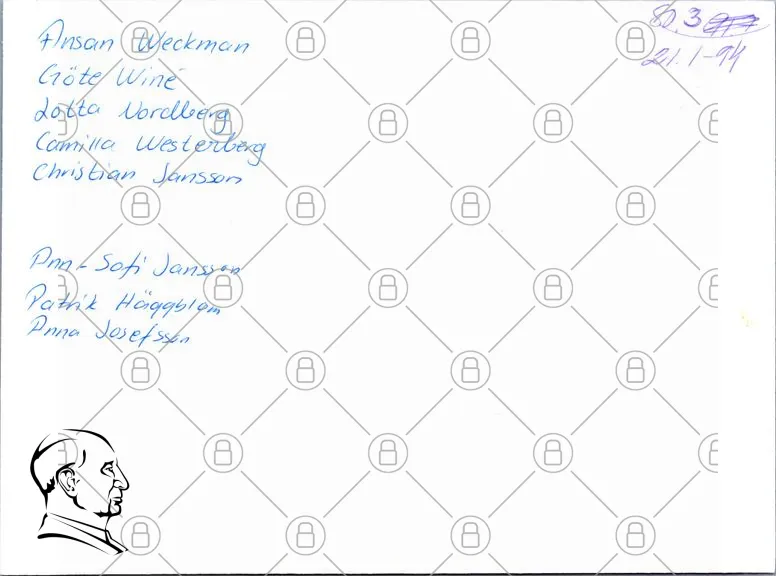 Ansan Weckman
Göte Winé
Lotta Nordberg
Camilla Westerberg
Christian Jansson
Ann-Sofi Jansson
Patrik Häggblom
Anna Josefsson
80.3
21.1-94